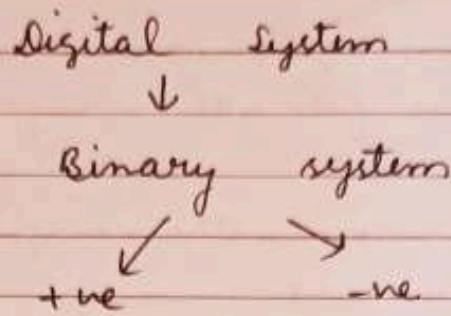 Digital System
↓
Binary system
↙ ↘
+ve -ve